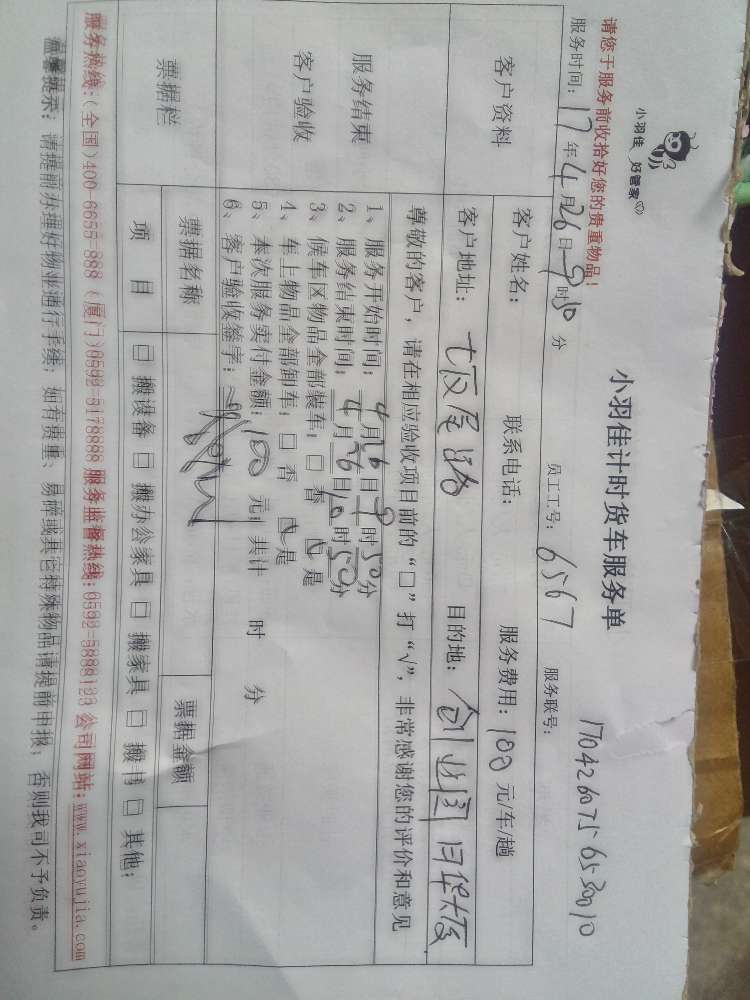 小羽佳 好管家
小羽佳计时货车服务单
1704260756530010
请您于服务前收拾好您的贵重物品！
服务时间：17年4月26日9时50分 员工工号：6567 服务联号：
客户资料
客户姓名： 联系电话： 服务费用：100元/车/趟
客户地址： 目的地：创业园 日华大厦
服务结束
客户验收
尊敬的客户，请在相应验收项目前的“□”打“√”，非常感谢您的评价和意见
1、服务开始时间：4月26日9时50分
2、服务结束时间：4月26日10时50分
3、候车区物品全部装车：□ 否 ☑ 是
4、车上物品全部卸车：□ 否 ☑ 是
5、本次服务实付金额：100元；共计 时 分
6、客户验收签字：
票据栏 票据名称 票据金额
项目 □ 搬设备 □ 搬办公家具 □ 搬家具 □ 搬书 □ 其他：
服务热线：(全国)400-6655-888 (厦门)0592-5178888 服务监督热线：0592-5888123 公司网站：www.xiaoyujia.com
温馨提示：请提前办理好物业通行手续；如有贵重、易碎或其它特殊物品请提前申报，否则我司不予负责。